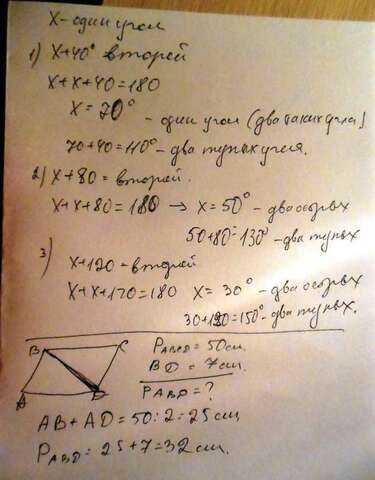 X - один угол
1) X+40° второй
X+X+40=180
X=70° - один угол (два таких угла)
70+40=110° - два тупых угла.
2) X+80 = второй.
X+X+80=180 → X=50° - два острых
50+80=130° - два тупых
3) X+120 - второй
X+X+120=180 X=30° - два острых
30+120=150° - два тупых.
B C A D
PABCD=50см.
BD=7см.
PABD=?
AB+AD=50:2=25см
PABD=25+7=32см.